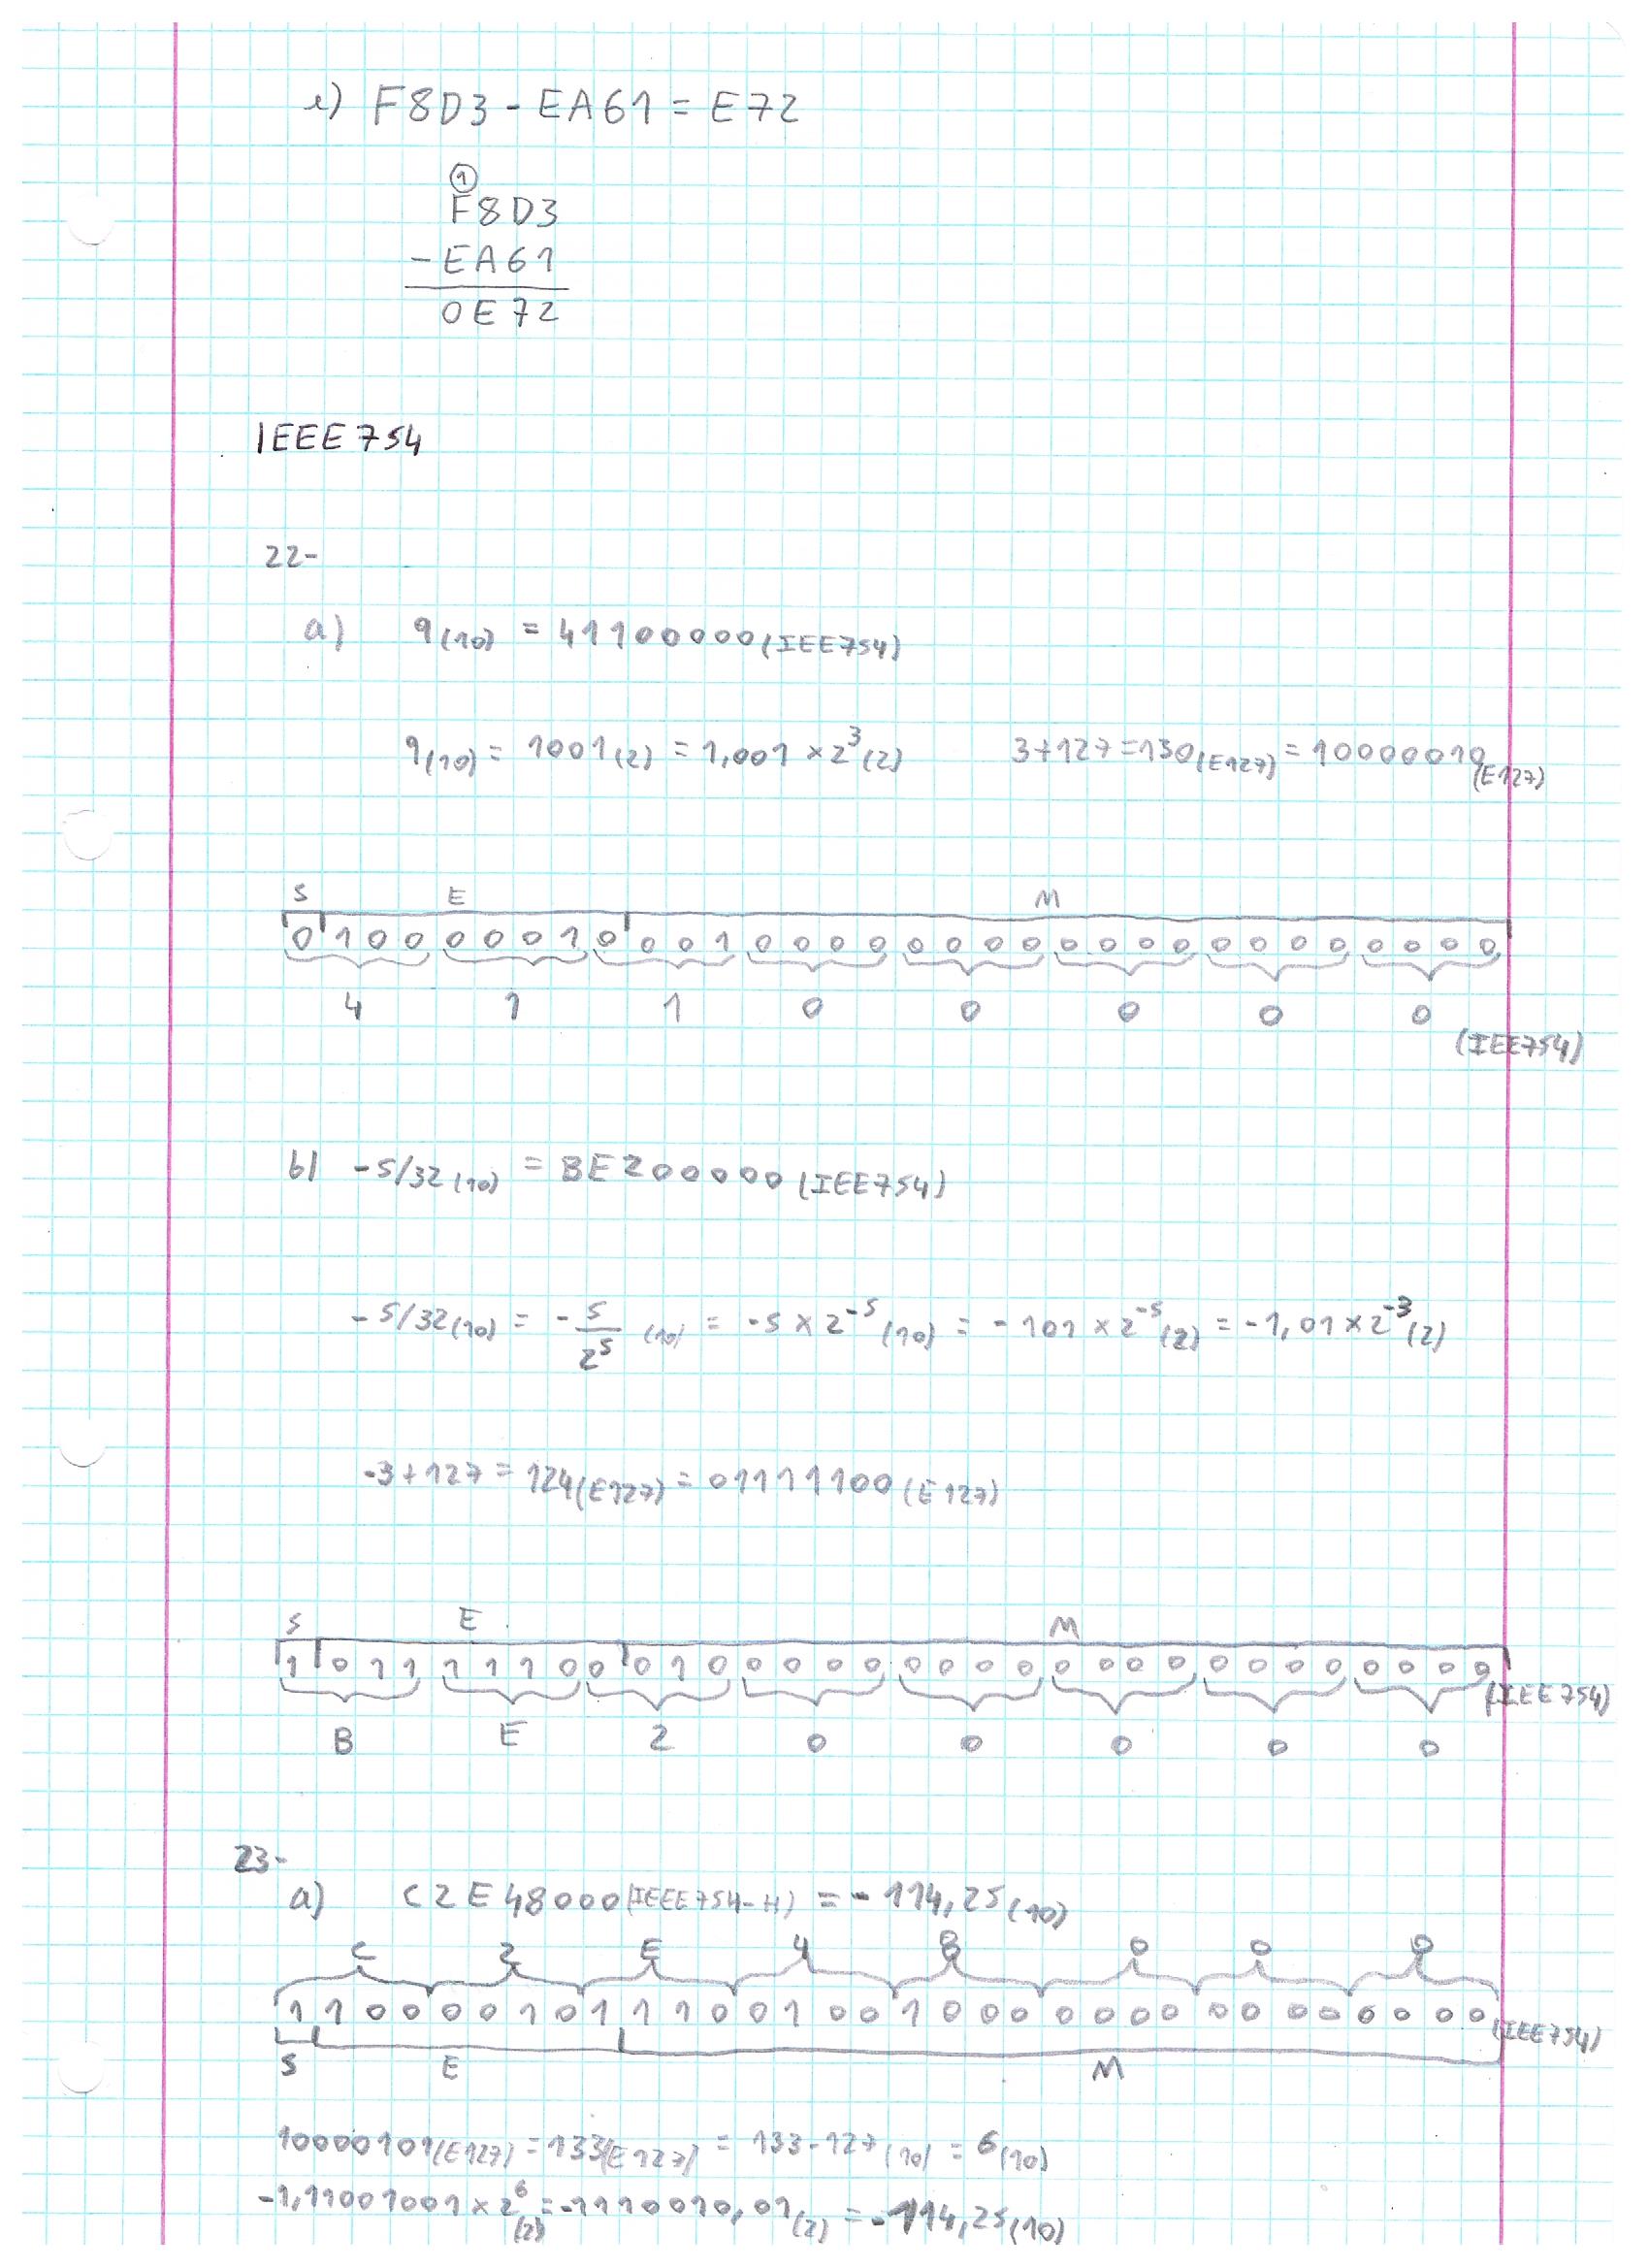 e) F8D3 - EA61 = E72
1
F8D3
- EA61
0E72
IEEE754
22-
a) 9(10) = 41100000(IEE754)
9(10) = 1001(2) = 1,001 × 2³(2) 3+127=130(E127)=10000010(E127)
S E M
0 1 0 0 0 0 0 1 0 0 0 1 0 0 0 0 0 0 0 0 0 0 0 0 0 0 0 0 0 0 0 0
4 1 1 0 0 0 0 0
(IEE754)
b) -5/32(10) = BE200000(IEE754)
-5/32(10) = -5/2⁵ (10) = -5 × 2⁻⁵(10) = -101 × 2⁻⁵(2) = -1,01 × 2⁻³(2)
-3+127 = 124(E127) = 01111100(E127)
S E M
1 0 1 1 1 1 1 0 0 0 1 0 0 0 0 0 0 0 0 0 0 0 0 0 0 0 0 0 0 0 0 0 (IEE754)
B E 2 0 0 0 0 0
23-
a) C2E48000(IEEE754-H) = -114,25(10)
C 2 E 4 8 0 0 0
1 1 0 0 0 0 1 0 1 1 1 0 0 1 0 0 1 0 0 0 0 0 0 0 0 0 0 0 0 0 0 0 (IEE754)
S E M
10000101(E127) = 133(E127) = 133-127(10) = 6(10)
-1,11001001 × 2⁶(2) = -1110010,01(2) = -114,25(10)